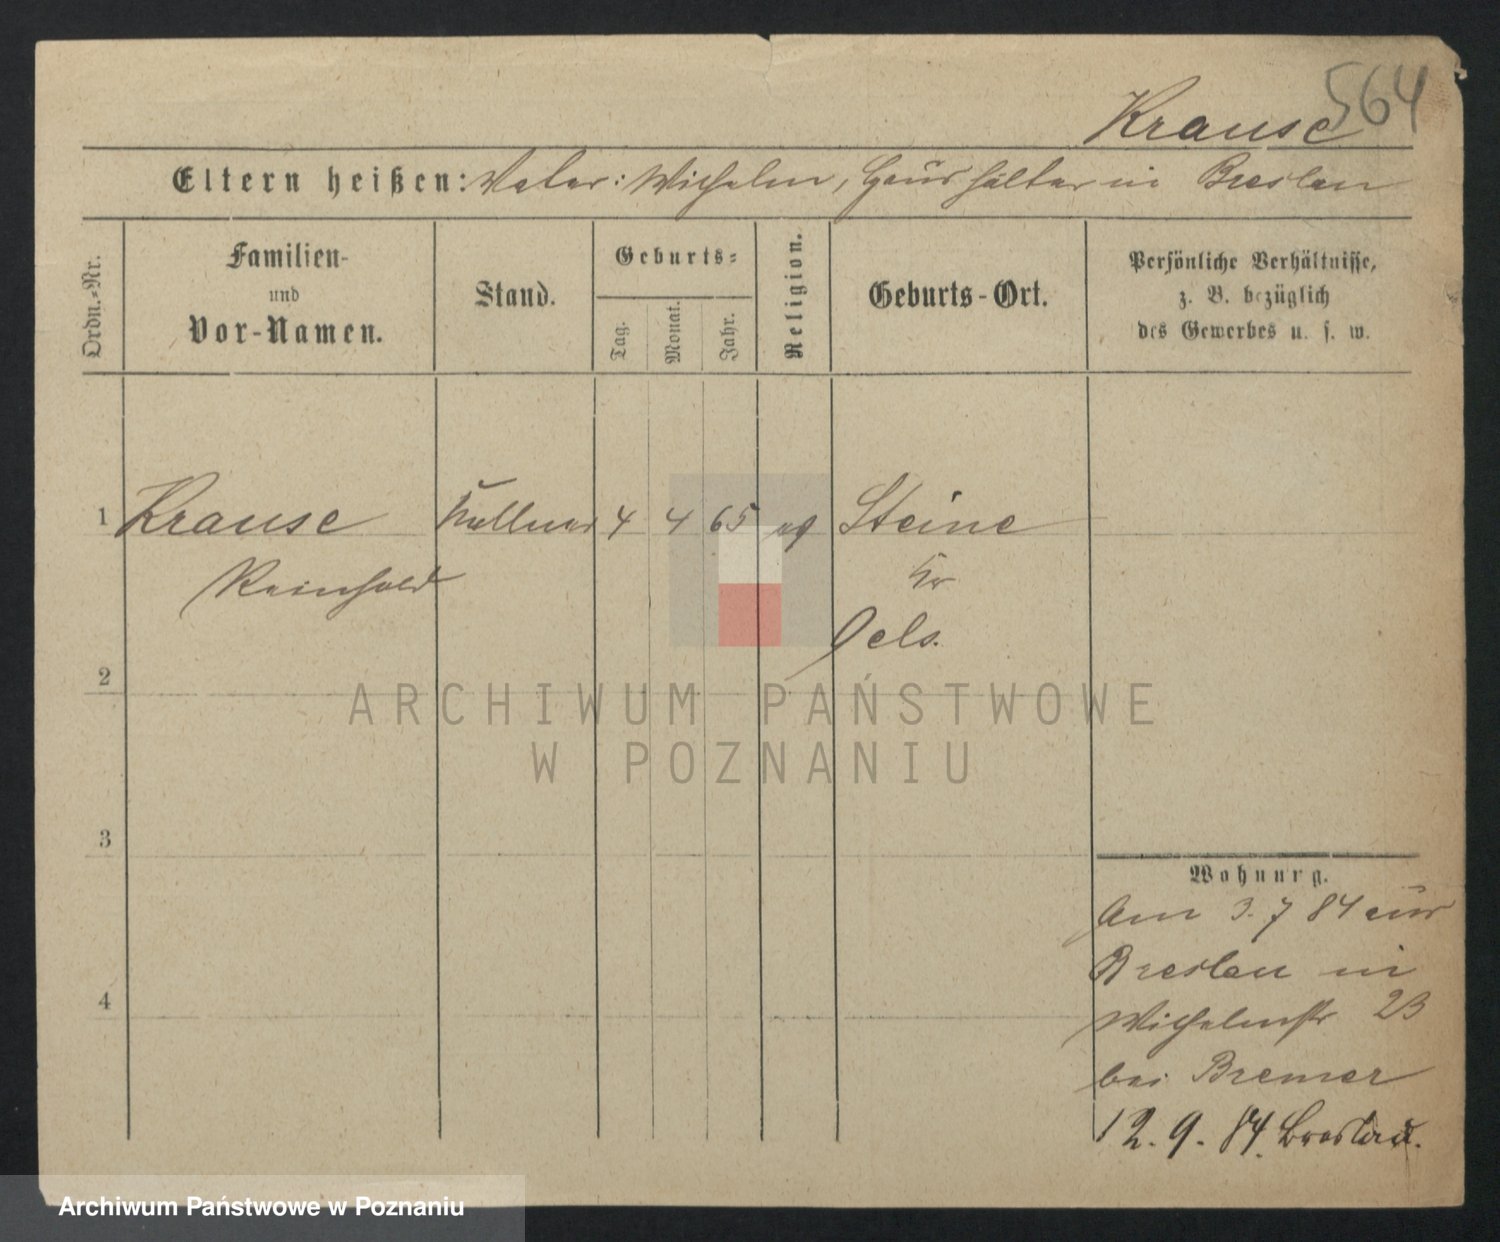 564
Krause
Eltern heißen: Vater: Wilhelm, Haushälter in Breslau
Ordn.-Nr.
Familien-
und
Vor-Namen.
Stand.
Geburts-
Tag.
Monat.
Jahr.
Religion.
Geburts-Ort.
Persönliche Verhältnisse,
z. B. bezüglich
des Gewerbes u. s. w.
1 Krause Kellner 4 4 65 ev Steine
Reinhold Kr
Oels.
2
3
4
Wohnung.
Am 3. 7 84 aus
Breslau in
Wilhelmstr 23
bei Bremer
12. 9. 84. Breslau.
ARCHIWUM PAŃSTWOWE
W POZNANIU
Archiwum Państwowe w Poznaniu